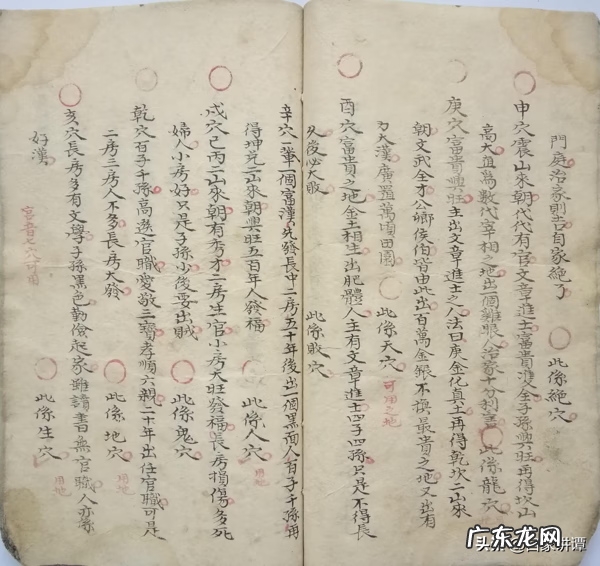 門庭治家則吉自家絕了 此係絕穴
申穴震山來朝代代有官文章進士富貴雙全子孫興旺再得坎山
高大直為數代宰相之地出個雞眼人治家十分利害 此係龍穴
庚穴富貴興旺主出文章進士之人法曰庚金化真土再得乾坎二山來
朝文武全才公卿侯伯皆由此出百萬金銀不損最貴之地又出有
力大漢廣置萬頃田園 此係天穴 可用之地
酉穴富貴之地金土相生出肥體人主有文章進士四子四孫只是不得長
久後必大敗 此係敗穴
辛穴一輩一個富漢先發長中二房五十年後出一個黑面人百子千孫再
得坤兌二山來朝興旺五百年人發福 此係人穴 用地
戌穴巳丙二山來朝有秀才二房生官小房大旺發福長房損傷多死
婦人小房好只是子孫少後要出賊 此係鬼穴
乾穴百子千孫高遷官職愛敬三寶孝順六親二十年出任官職可是
二房三房人不多長房大發 此係地穴 用地
亥穴長房多有文學子孫黑色勤儉起家雖讀書無官職人亦係
好漢 此係生穴 用地
头条 @百家讲谭
广东龙网